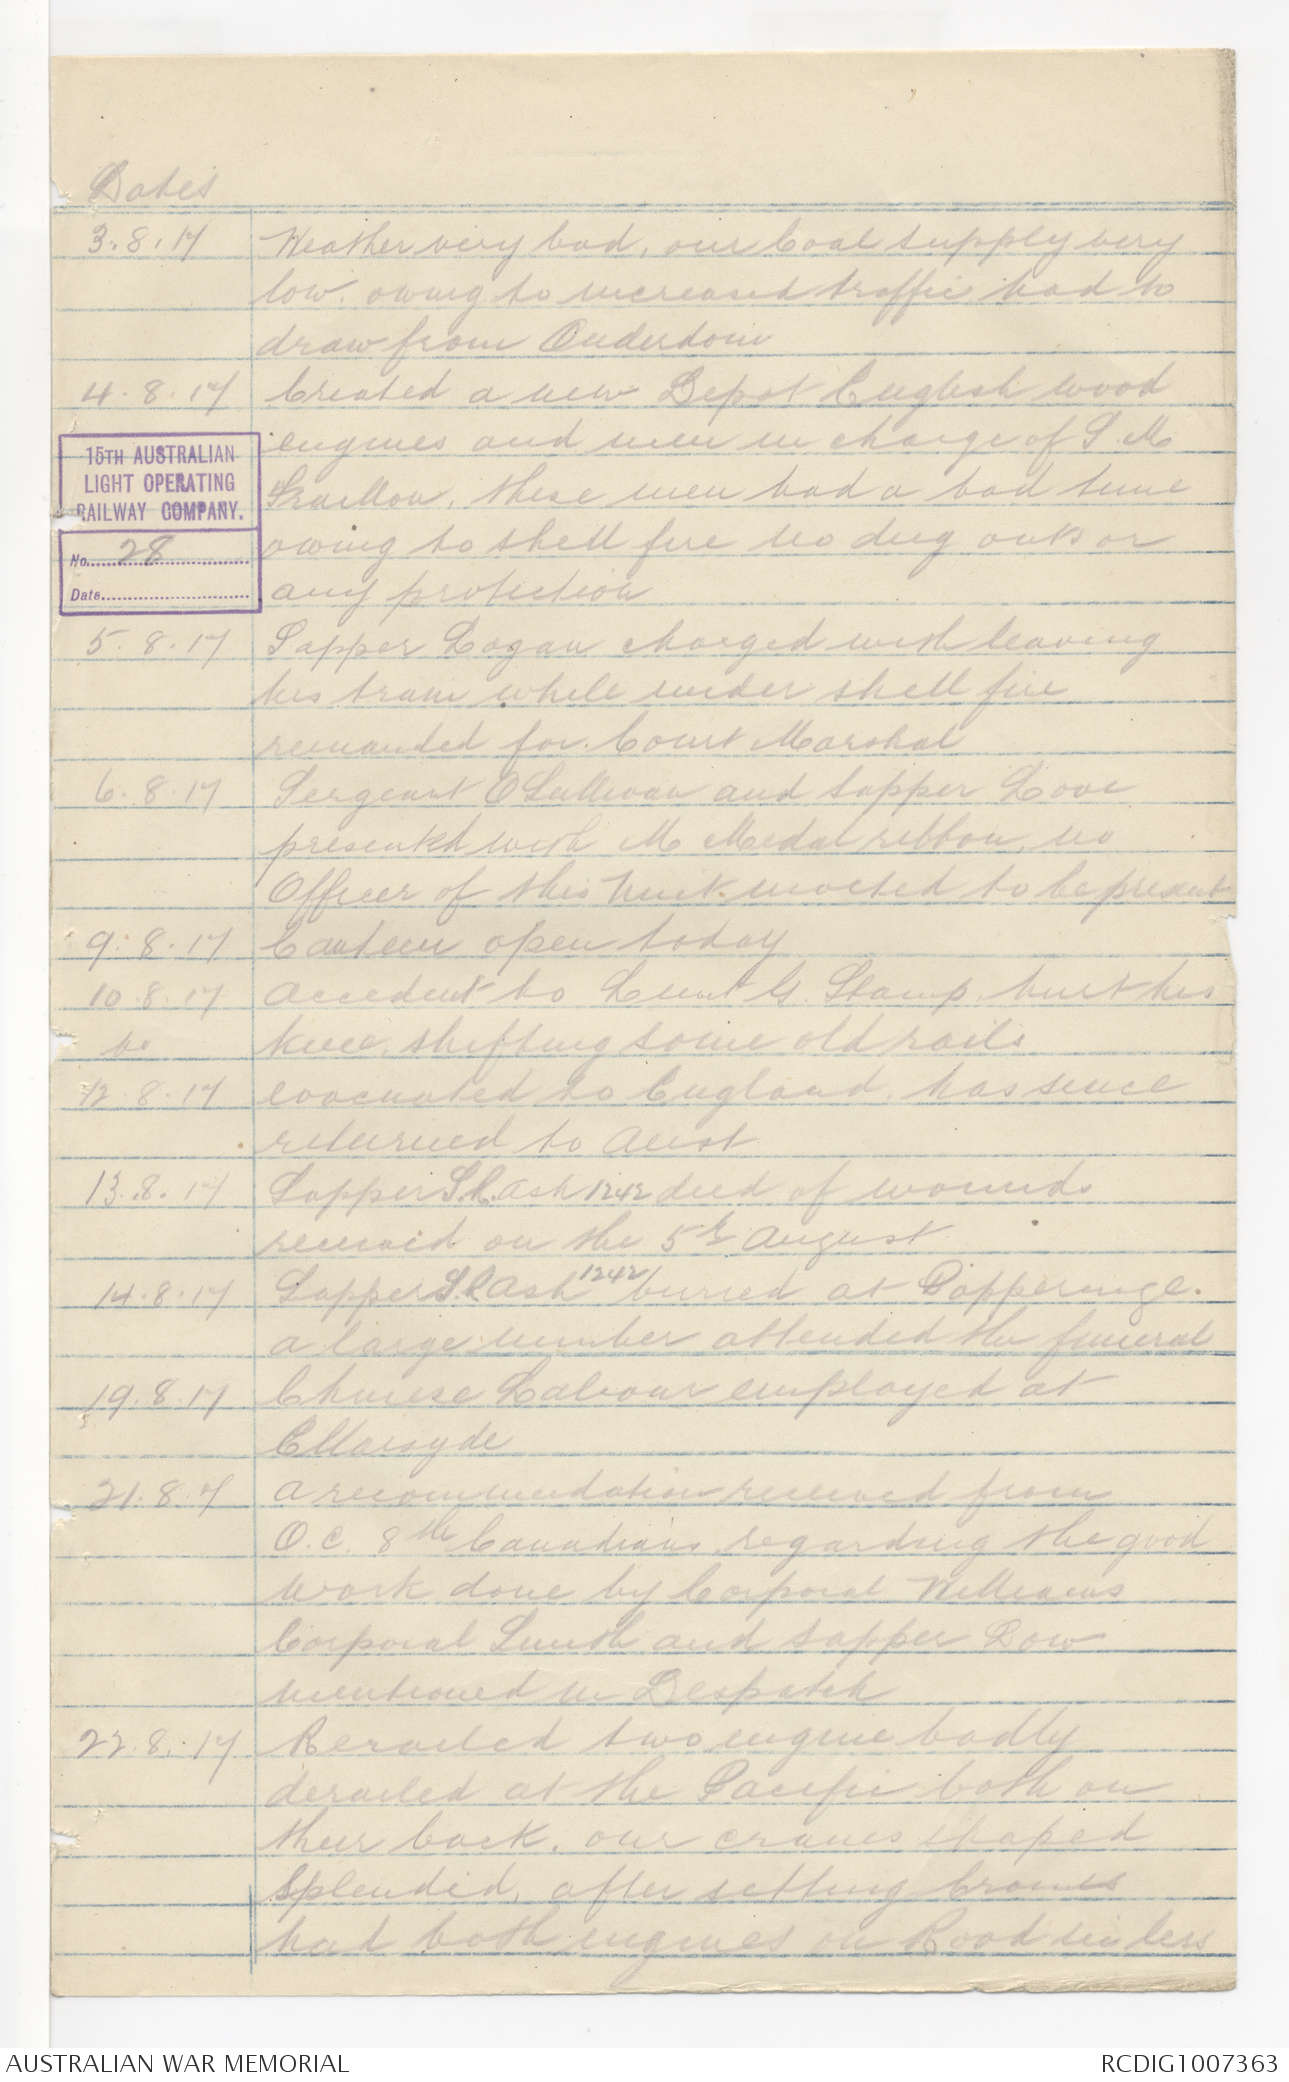 Dates
3.8.17 Weather very bad, our Coal supply very
low. owing to increased traffic had to
draw from Ouderdom
4.8.17 Created a new Depot English Wood
engines and men in charge of S.M
these men had a bad time
owing to shell fire no dug outs or
any protection
15TH AUSTRALIAN
LIGHT OPERATING
RAILWAY COMPANY.
No. 28
Date
5.8.17 Sapper Logan charged with leaving
his train while under shell fire
remanded for Court Marshal
6.8.17 Sergeant O'Sullivan and Sapper Love
presented with M Medal ribbon, no
Officer of this Unit invited to be present
9.8.17 Canteen open today
10.8.17 Accident to Lieut G. Stamp, hurt his
to knee, shifting some old rails
12.8.17 evacuated to England, has since
returned to Aust
13.8.17 Sapper S.R. Ash 1242 died of wounds
received on the 5th August
14.8.17 Sapper S.R Ash 1242 burried at Popperinge.
a large number attended the funeral
19.8.17 Chinese Labour employed at
Ellarsyde
21.8.17 A recommendation received from
O.C. 8th Canadians, regarding the good
work done by Corporal Williams
Corporal Smith and Sapper Dow
mentioned in Despatch
22.8.17 Rerailed two engine badly
derailed at the Pacific both on
their back. our cranes shaped
Splendid, after setting Cranes
had both engines on Road in less
AUSTRALIAN WAR MEMORIAL
RCDIG1007363